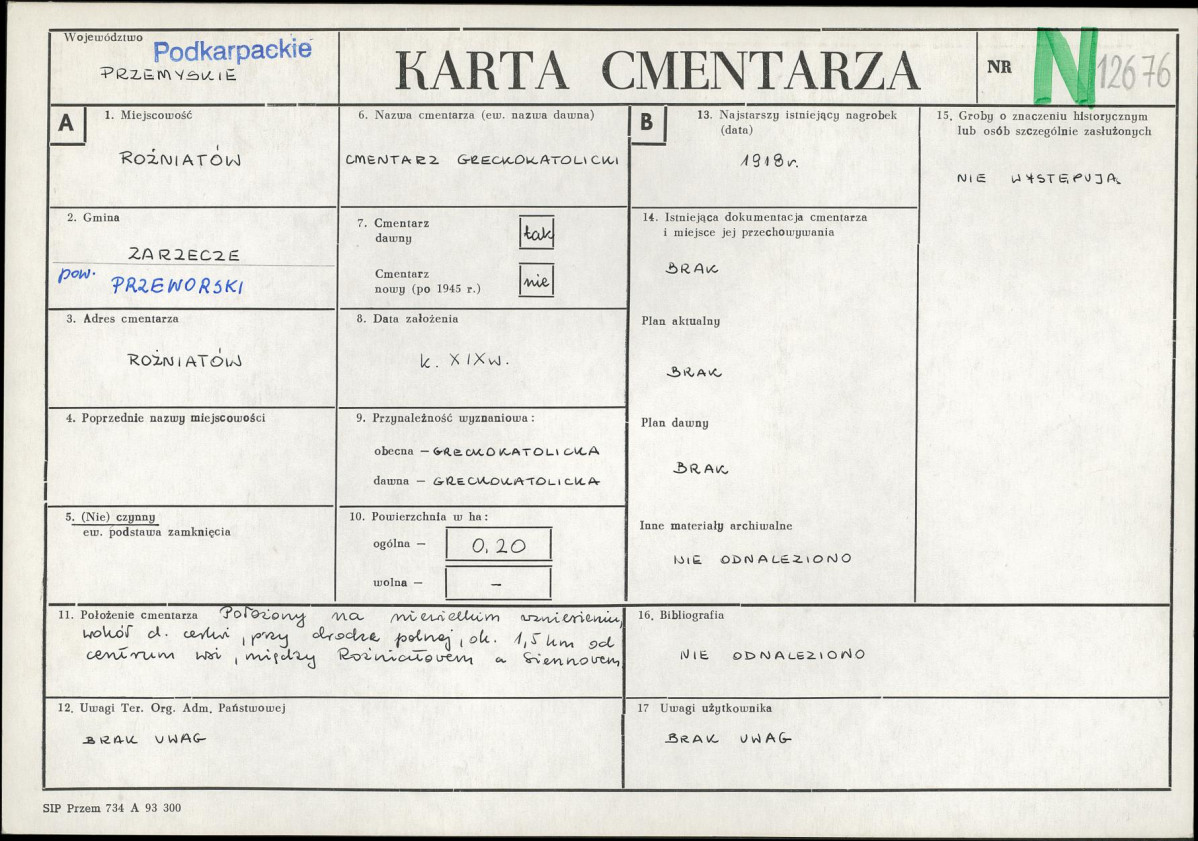 Województwo
Podkarpackie
PRZEMYSKIE
KARTA CMENTARZA
NR
N 12676
A
1. Miejscowość
ROŹNIATÓW
2. Gmina
ZARZECZE
pow. PRZEWORSKI
3. Adres cmentarza
ROŹNIATÓW
4. Poprzednie nazwy miejscowości
5. (Nie) czynny
ew. podstawa zamknięcia
6. Nazwa cmentarza (ew. nazwa dawna)
CMENTARZ GRECKOKATOLICKI
7. Cmentarz
dawny
tak
Cmentarz
nowy (po 1945 r.)
nie
8. Data założenia
k. XIXw.
9. Przynależność wyznaniowa :
obecna — GRECKOKATOLICKA
dawna — GRECKOKATOLICKA
10. Powierzchnia w ha :
ogólna — 0.20
wolna — –
11. Położenie cmentarza Położony na niewielkim wzniesieniu,
wokół d. cerkwi, przy drodze polnej, ok. 1,5 km od
centrum wsi, między Rożniatowem a Siennowem
12. Uwagi Ter. Org. Adm. Państwowej
BRAK UWAG
B
13. Najstarszy istniejący nagrobek
(data)
1918r.
14. Istniejąca dokumentacja cmentarza
i miejsce jej przechowywania
BRAK
Plan aktualny
BRAK
Plan dawny
BRAK
Inne materiały archiwalne
NIE ODNALEZIONO
15. Groby o znaczeniu historycznym
lub osób szczególnie zasłużonych
NIE WYSTĘPUJĄ
16. Bibliografia
NIE ODNALEZIONO
17 Uwagi użytkownika
BRAK UWAG
SIP Przem 734 A 93 300